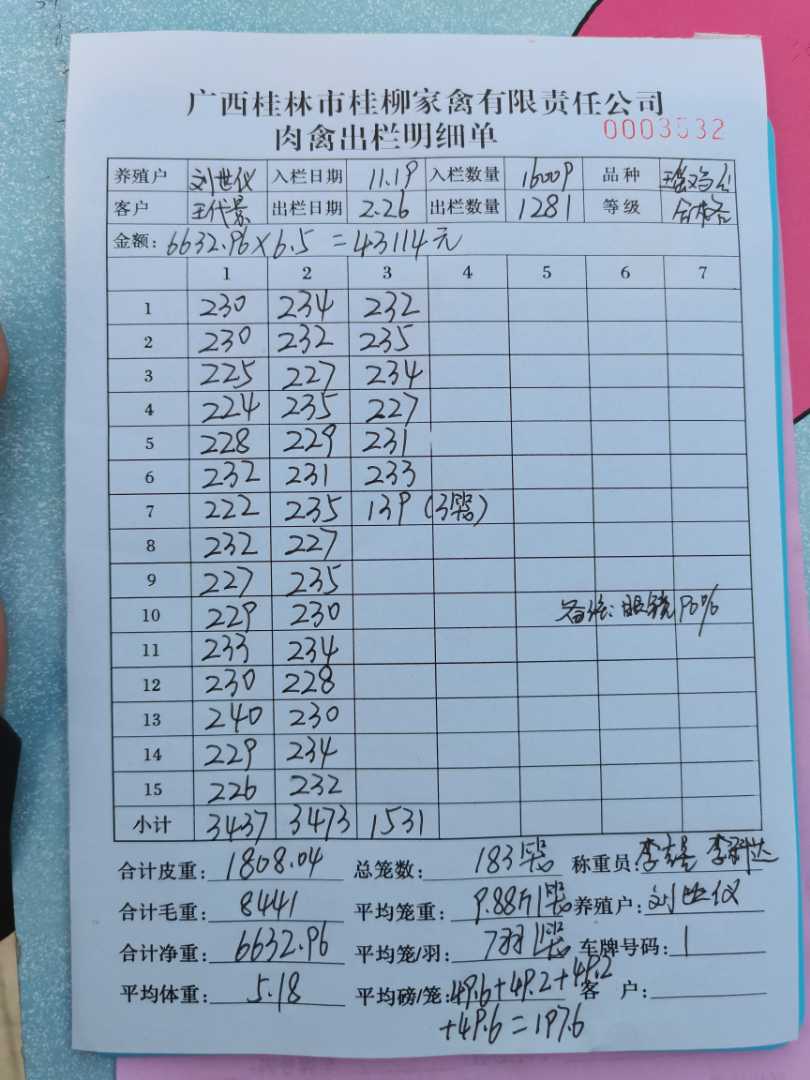 广西桂林市桂柳家禽有限责任公司
肉禽出栏明细单 0003532
养殖户 刘世仪 入栏日期 11.19 入栏数量 16009 品种
客户 王代景 出栏日期 2.26 出栏数量 1281 等级 合格
金额: 6632.96×6.5=43114元
1 2 3 4 5 6 7
1 230 234 232
2 230 232 235
3 225 227 234
4 224 235 227
5 228 229 231
6 232 231 233
7 222 235 139 (3笼)
8 232 227
9 227 235
10 229 230 备注: 眼镜96%
11 233 234
12 230 228
13 240 230
14 229 234
15 226 232
小计 3437 3473 1531
合计皮重: 1808.04 总笼数: 183笼 称重员: 李 李
合计毛重: 8441 平均笼重: 9.88斤/笼 养殖户: 刘世仪
合计净重: 6632.96 平均笼/羽: 7羽/笼 车牌号码: 1
平均体重: 5.18 平均磅/笼: 49.6+49.2+49.2 客 户:
+49.6=197.6